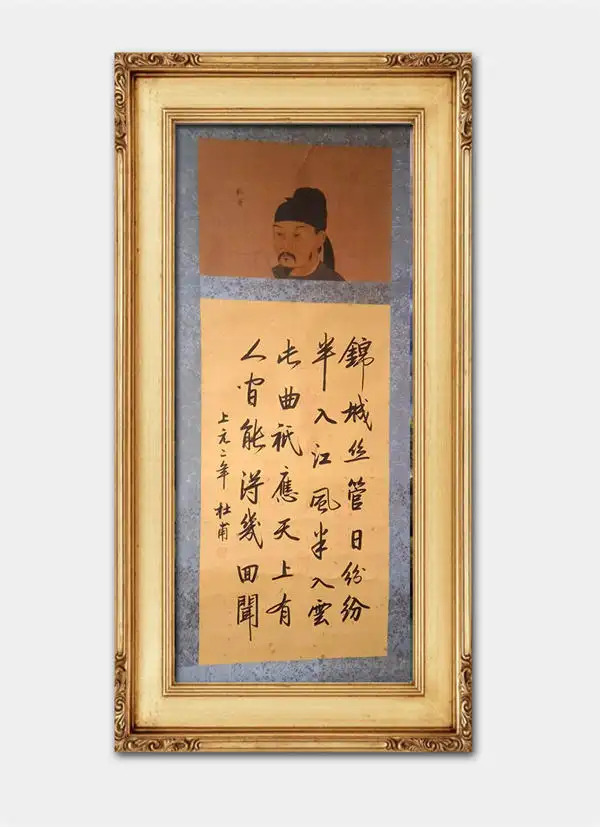 錦城丝管日紛紛
半入江風半入雲
此曲祗應天上有
人間能得幾回聞
上元二年 杜甫